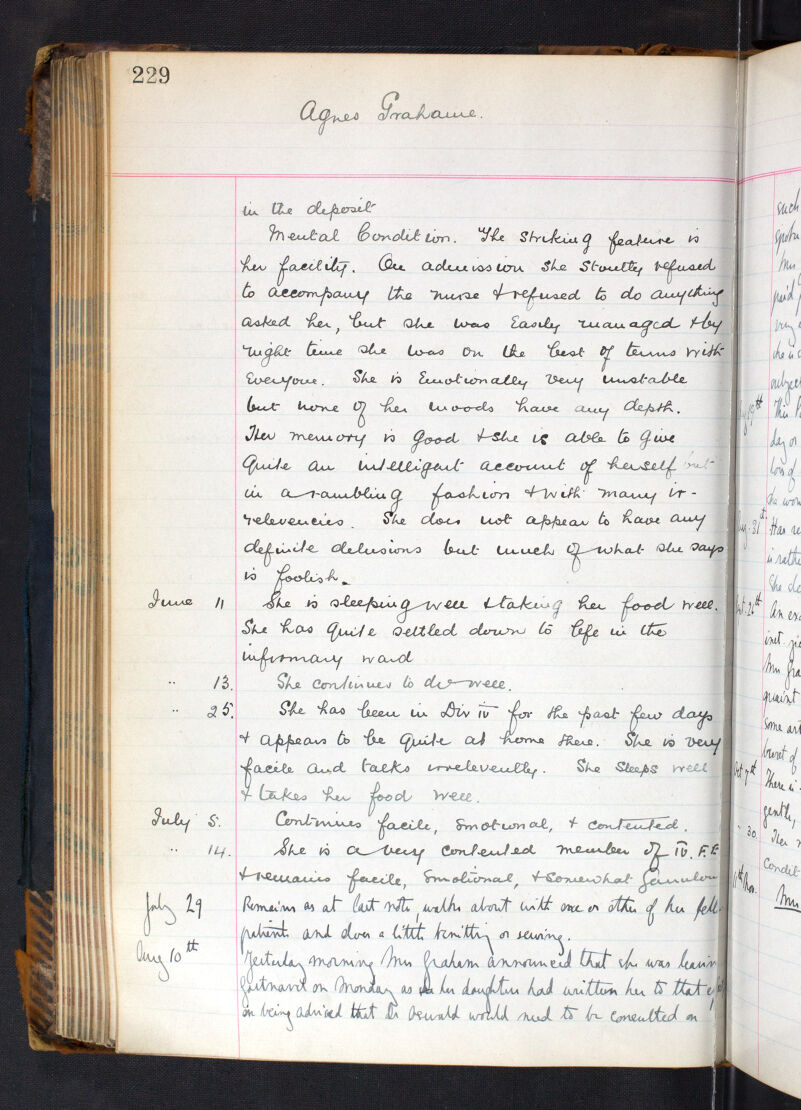 229
Agnes Grahame.
in the deposit
Mental Condition. The striking feature is
her facility. On admission she stoutly refused
to accompany the nurse & refused to do anything
asked her, but she was Easily managed & by
night time she was on the best of terms with
Everyone. She is Emotionally very unstable
but none of her moods have any depth.
Her memory is good & she is able to give
Quite an intelligent account of herself but
in a rambling fashion & with many ir-
relevencies. She does not appear to have any
definite delusions but much of what she says
is foolish.
June 11 She is sleeping well & taking her food well.
She has Quite settled down to life in the
infirmary ward
" 13. She continues to do well.
" 25. She has been in Div IV for the past few days
& appears to be Quite at home there. She is very
facile and talks irrelevently. She sleeps well
& takes her food well.
July 5. Continues facile, Emotional, & contented.
" 14. She is a very contented member of IV. F.E
& remains facile, Emotional, & somewhat
July 29 Remains as at last note, walks about with one or other of her fell-
patients and does a little knitting or sewing.
Aug 10th Yesterday morning Mrs Graham announced that she was leavin
Gartnavel on Monday as her daughter had written her to that
on being advised that Dr Oswald would need to be consulted on
such
Mrs
paid
very
she is
subject
This
day or
loss of
she
Aug. 31st Has
is rathe
She de
Oct. 26th An
Mrs Gra
quaint
some
burst of
Oct 7th There is
gently,
" 30 Her
condit
11th Nov. Mrs